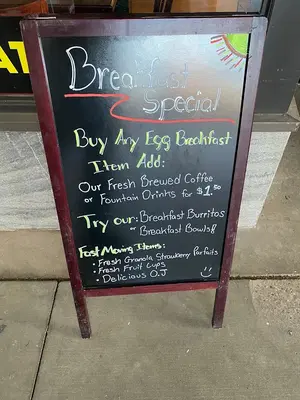 AT
Breakfast
Special
Buy Any Egg Breakfast
Item Add:
Our Fresh Brewed Coffee
or Fountain Drinks for $1.50
Try our: Breakfast Burritos
or Breakfast Bowls!!
Fast Moving Items:
• Fresh Granola Strawberry Parfaits
• Fresh Fruit Cups
• Delicious O.J